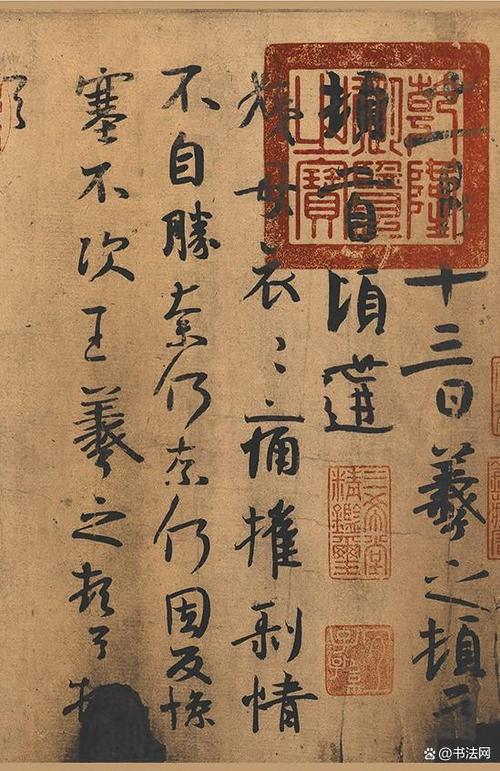 十一月十三日羲之頓首
頓首頃遘
姨母哀〻痛摧剥情
不自勝奈何奈何因反慘
塞不次王羲之頓首頓
乾隆
御覽
之寶
三希堂
精鑑璽
宜子孫
@书法网